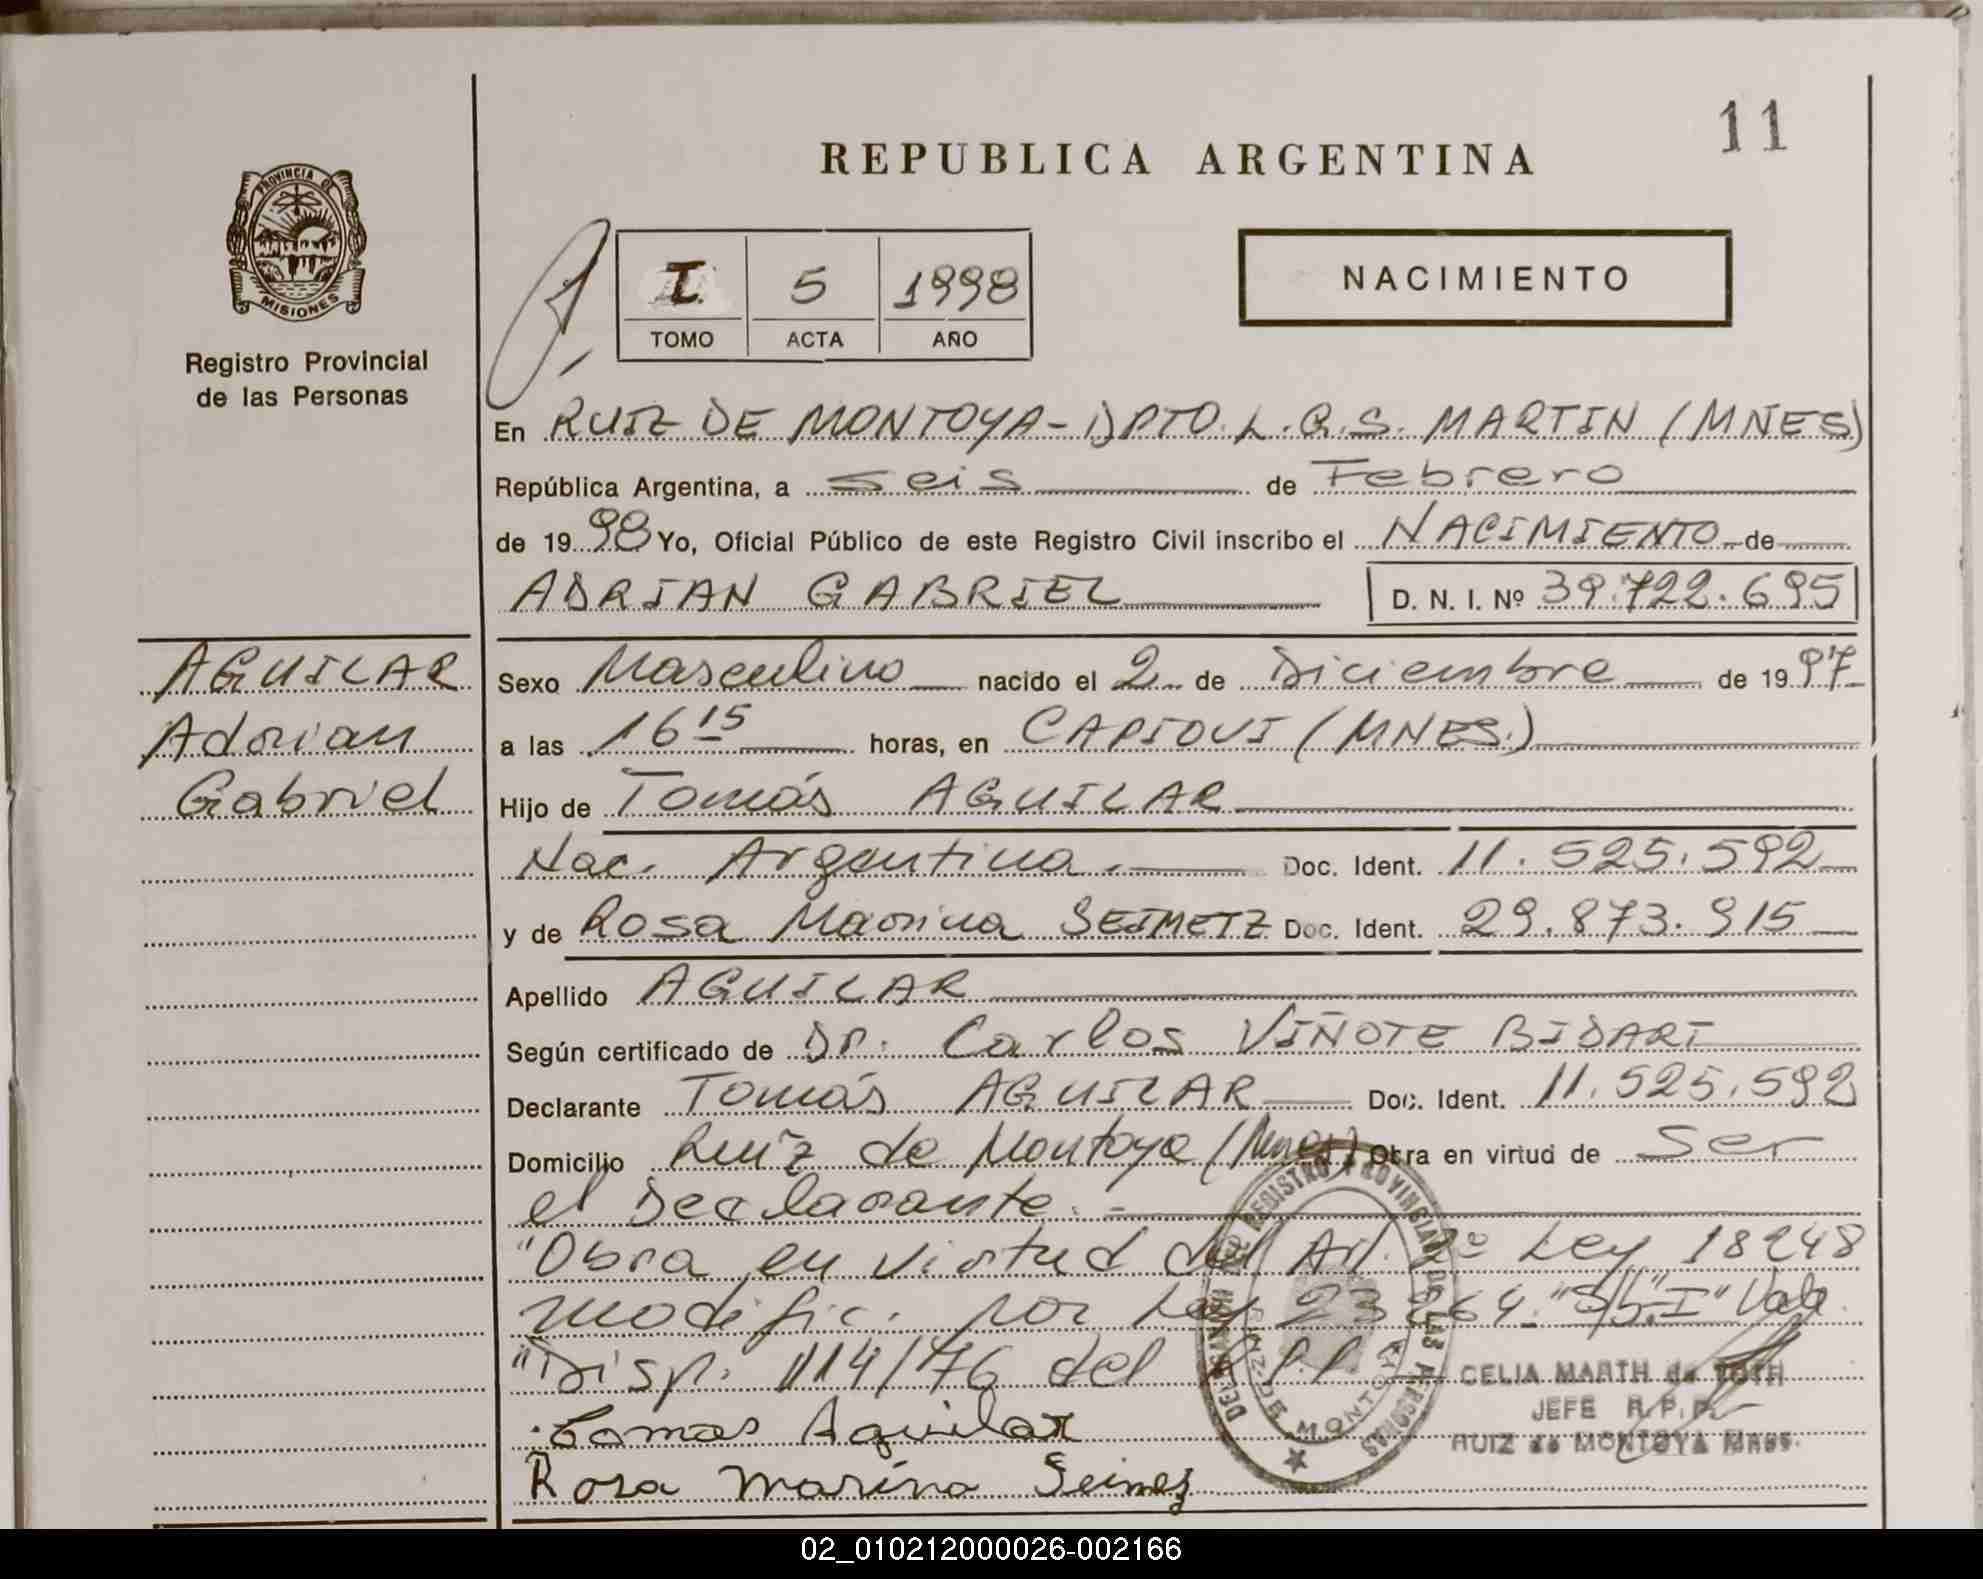 11
REPUBLICA ARGENTINA
PROVINCIA DE
MISIONES
Registro Provincial
de las Personas
I 5 1998
TOMO ACTA AÑO
NACIMIENTO
En RUIZ DE MONTOYA - DPTO. L. G. S. MARTIN (MNES)
República Argentina, a seis de Febrero
de 1998 Yo, Oficial Público de este Registro Civil inscribo el NACIMIENTO de
ADRIAN GABRIEL D. N. I. Nº 39.722.695
AGUILAR
Adrian
Gabriel
Sexo Masculino nacido el 2 de Diciembre de 1997
a las 16 15 horas, en CAPIOVI (MNES.)
Hijo de Tomás AGUILAR
Nac. Argentina. Doc. Ident. 11.525.592
y de Rosa Marina SEIMETZ Doc. Ident. 29.873.915
Apellido AGUILAR
Según certificado de Dr. Carlos VIÑOTE BIDART
Declarante Tomás AGUILAR Doc. Ident. 11.525.592
Domicilio Ruiz de Montoya (Mnes) Obra en virtud de Ser
el Declarante. -
"Obra en virtud del Art. 2º Ley 18248
modific. por Ley 23264. "S/b "I" Vale.
"Disp. 114/76 del R.P.P.
Tomas Aguilar
Rosa Marina Seimez
DEL REGISTRO PROVINCIAL DE LAS PERSONAS
RUIZ DE MONTOYA
CELIA MARTH de TOTH
JEFE R.P.P.
RUIZ de MONTOYA Mnes.
02_010212000026-002166